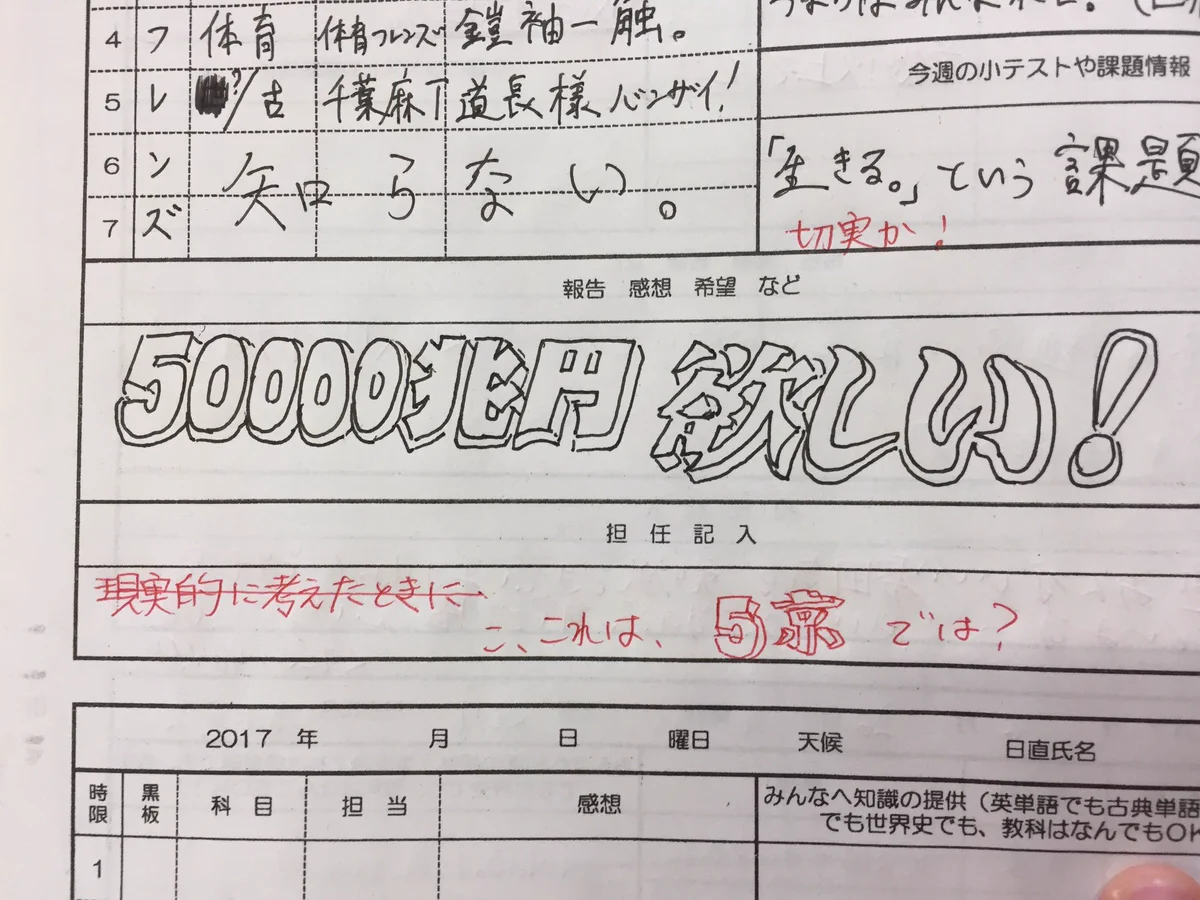 4 フ 体育 体育フレンズ 鎧袖一触。
今週の小テストや課題情報
5 レ ?/古 千葉麻丁 道長様バンザイ!
6 ン
矢口らない。
7 ズ
「生きる。」という課題
切実か!
報告 感想 希望 など
50000兆円欲しい!
担任記入
現実的に考えたときに
こ、これは、5京では?
2017 年 月 日 曜日 天候 日直氏名
時限 黒板 科目 担当 感想 みんなへ知識の提供(英単語でも古典単語
でも世界史でも、教科はなんでもOK
1